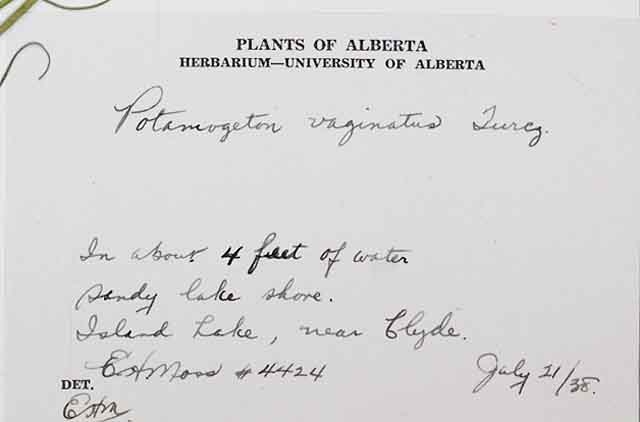 PLANTS OF ALBERTA
HERBARIUM—UNIVERSITY OF ALBERTA
Potamogeton vaginatus Turcz.
In about 4 feet of water
sandy lake shore.
Island Lake, near Clyde.
EHMoss #4424
July 21/38.
DET.
EHM